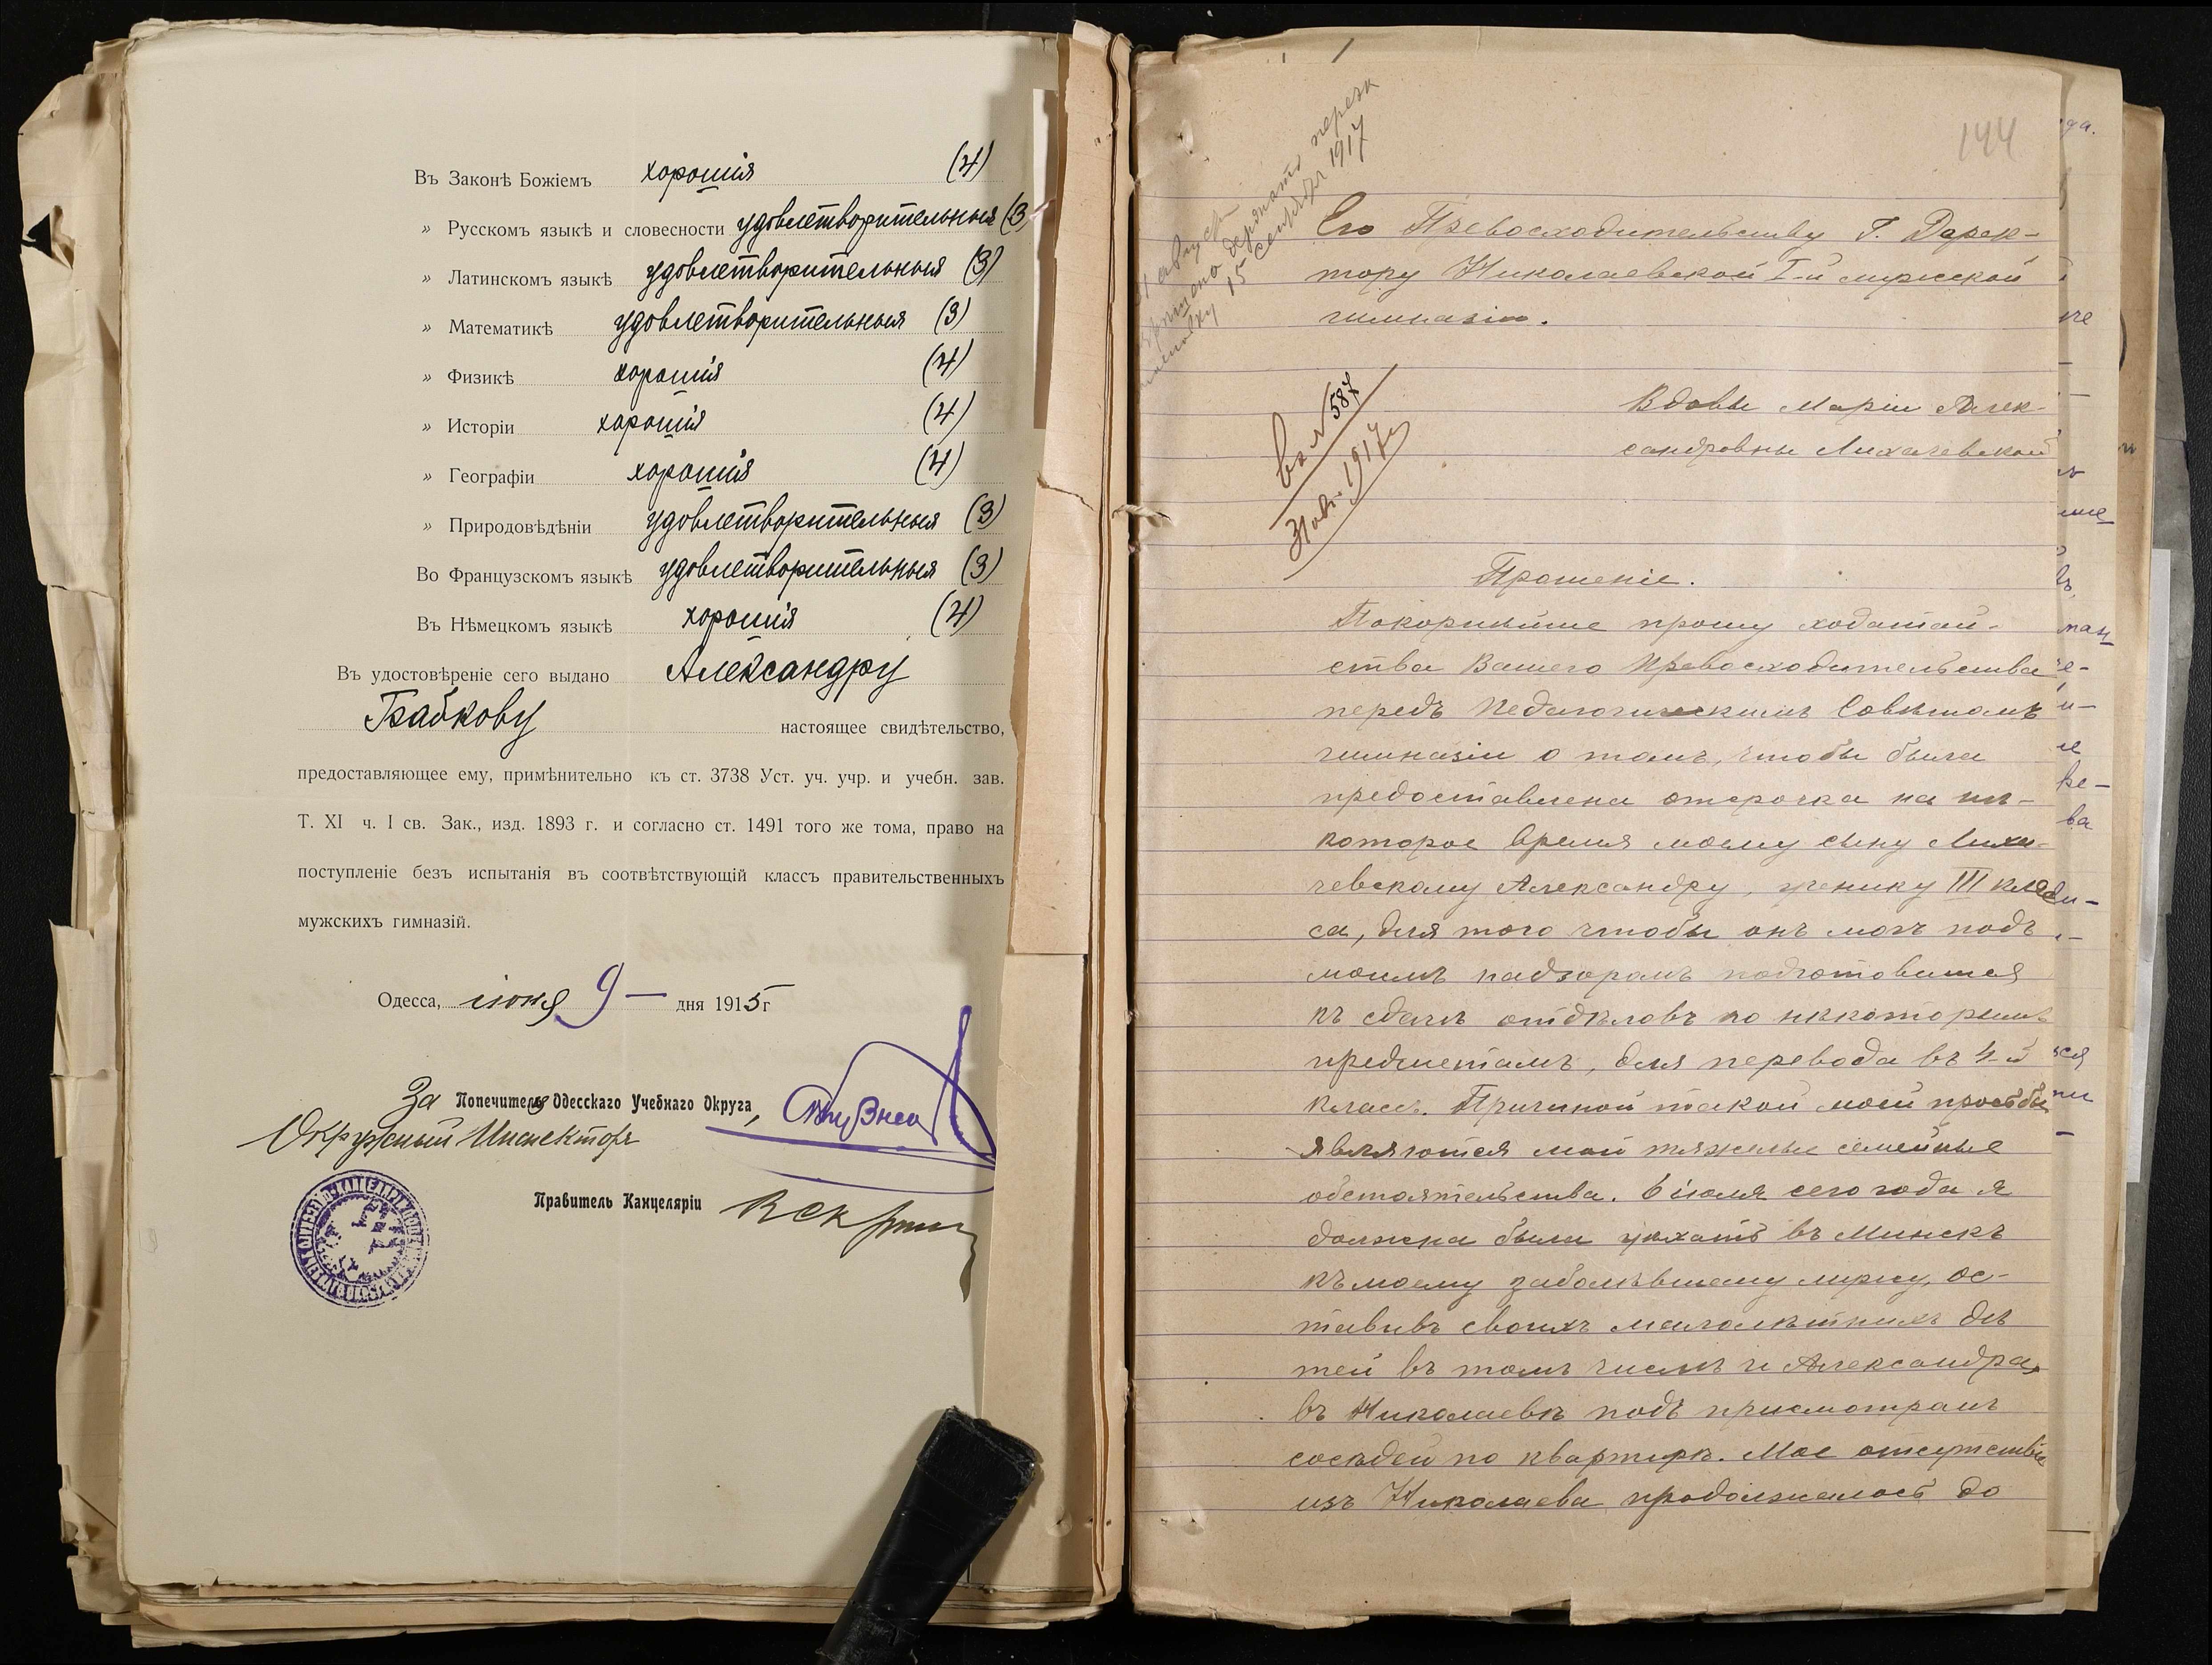 Въ Законѣ Божіемъ хорошія (4)
» Русскомъ языкѣ и словесности удовлетворительныя (3)
» Латинскомъ языкѣ удовлетворительныя (3)
» Математикѣ удовлетворительныя (3)
» Физикѣ хорошія (4)
» Исторіи хорошія (4)
» Географіи хорошія (4)
» Природовѣдѣніи удовлетворительныя (3)
Во Французскомъ языкѣ удовлетворительныя (3)
Въ Нѣмецкомъ языкѣ хорошія (4)
Въ удостовѣреніе сего выдано Александру
Бабкову настоящее свидѣтельство,
предоставляющее ему, примѣнительно къ ст. 3738 Уст. уч. учр. и учебн. зав.
Т. XI ч. I св. Зак., изд. 1893 г. и согласно ст. 1491 того же тома, право на
поступленіе безъ испытанія въ соотвѣтствующій классъ правительственныхъ
мужскихъ гимназій.
Одесса, іюня 9 — дня 1915 г
За Попечителя Одесскаго Учебнаго Округа,
Окружный Инспекторъ
Правитель Канцеляріи
144
августа
держать перек
15 сентября 1917
Его Превосходительству Г. Дирек-
тору Николаевской I-й мужской
гимназіи.
вх. № 587
1917 г
Вдовы Маріи Алек-
сандровны Лихачевской
Прошеніе.
Покорнѣйше прошу ходатай-
ства Вашего Превосходительства
передъ Педагогическимъ Совѣтомъ
гимназіи о томъ, чтобы была
предоставлена отсрочка на нѣ-
которое время моему сыну Лиха-
чевскому Александру, ученику III клас-
са, для того чтобы онъ могъ подъ
моимъ надзоромъ подготовится
къ сдачѣ отдѣловъ по нѣкоторымъ
предметамъ, для перевода въ 4-й
классъ. Причиной такой моей просьбы
являются мои тяжелыя семейные
обстоятельства. 6 іюля сего года я
должна была уѣхать въ Минскъ
къ моему заболѣвшему мужу, ос-
тавивъ своихъ малолѣтнихъ дѣ
тей въ томъ числѣ и Александра,
въ Николаевѣ подъ присмотромъ
сосѣдей по квартирѣ. Мое отсутствіе
изъ Николаева продолжалось до